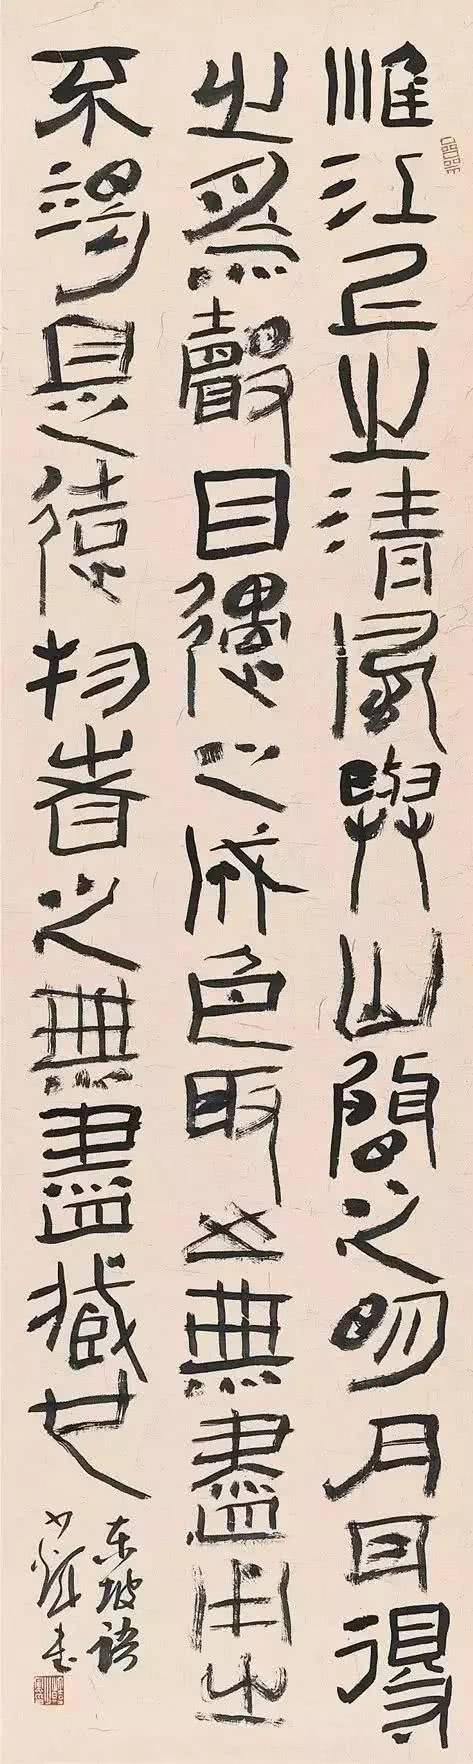 惟江上之清風與山間之明月耳得
之為聲目遇之成色取之無盡用之
不竭是造物者之無盡藏也
东坡语